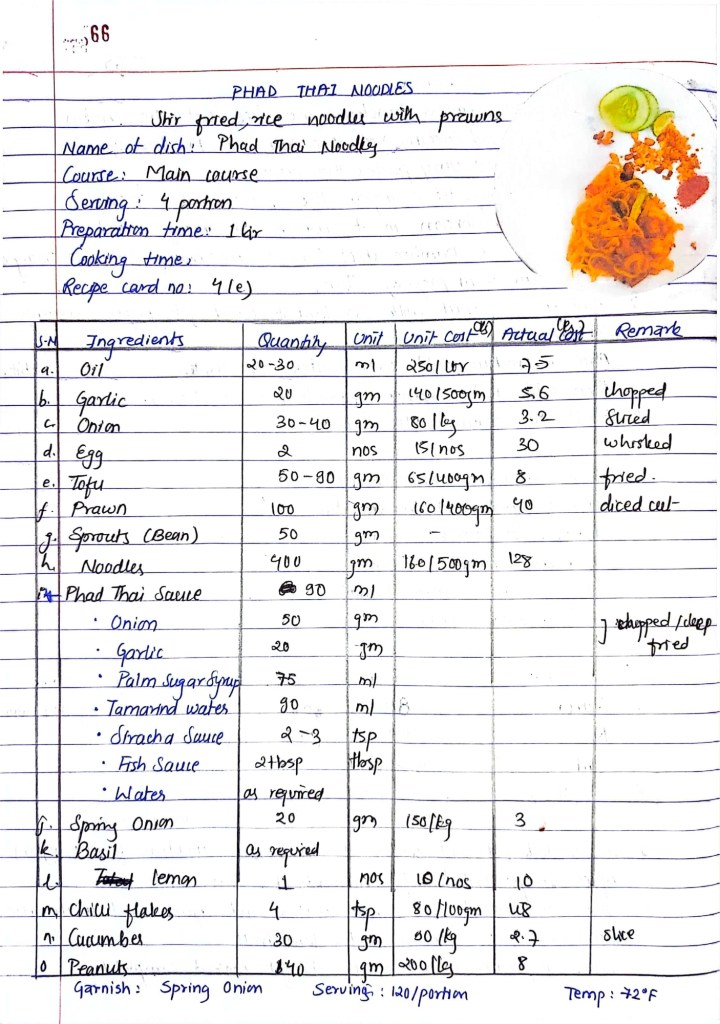 66
PHAD THAI NOODLES
Stir fried, rice noodles with prawns
Name of dish: Phad Thai Noodles
Course: Main course
Serving: 4 portion
Preparation time: 1 hr
Cooking time:
Recipe card no: 4(e)
S.N Ingredients Quantity Unit Unit Cost (Rs) Actual Cost (Rs) Remark
a. Oil 20-30 ml 250/ltr 7.5
b. Garlic 20 gm 140/500gm 5.6 chopped
c. Onion 30-40 gm 80/kg 3.2 sliced
d. Egg 2 nos 15/nos 30 whisked
e. Tofu 50-90 gm 65/400gm 8 fried.
f. Prawn 100 gm 160/400gm 40 diced cut
g. Sprouts (Bean) 50 gm -
h. Noodles 400 gm 160/500gm 128
Phad Thai Sauce 90 ml
• Onion 50 gm
• Garlic 20 gm ] chopped/deep fried
• Palm Sugar Syrup 75 ml
• Tamarind water 90 ml
• Siracha Sauce 2-3 tsp
• Fish Sauce 2tbsp tbsp
• Water as required
j. Spring Onion 20 gm 150/kg 3
k. Basil as required
l. lemon 1 nos 10/nos 10
m. Chilli flakes 4 tsp 80/100gm 48
n. Cucumber 30 gm 90/kg 2.7 slice
o Peanuts 40 gm 200/kg 8
Garnish: Spring Onion Serving: 120/portion Temp: 72°F